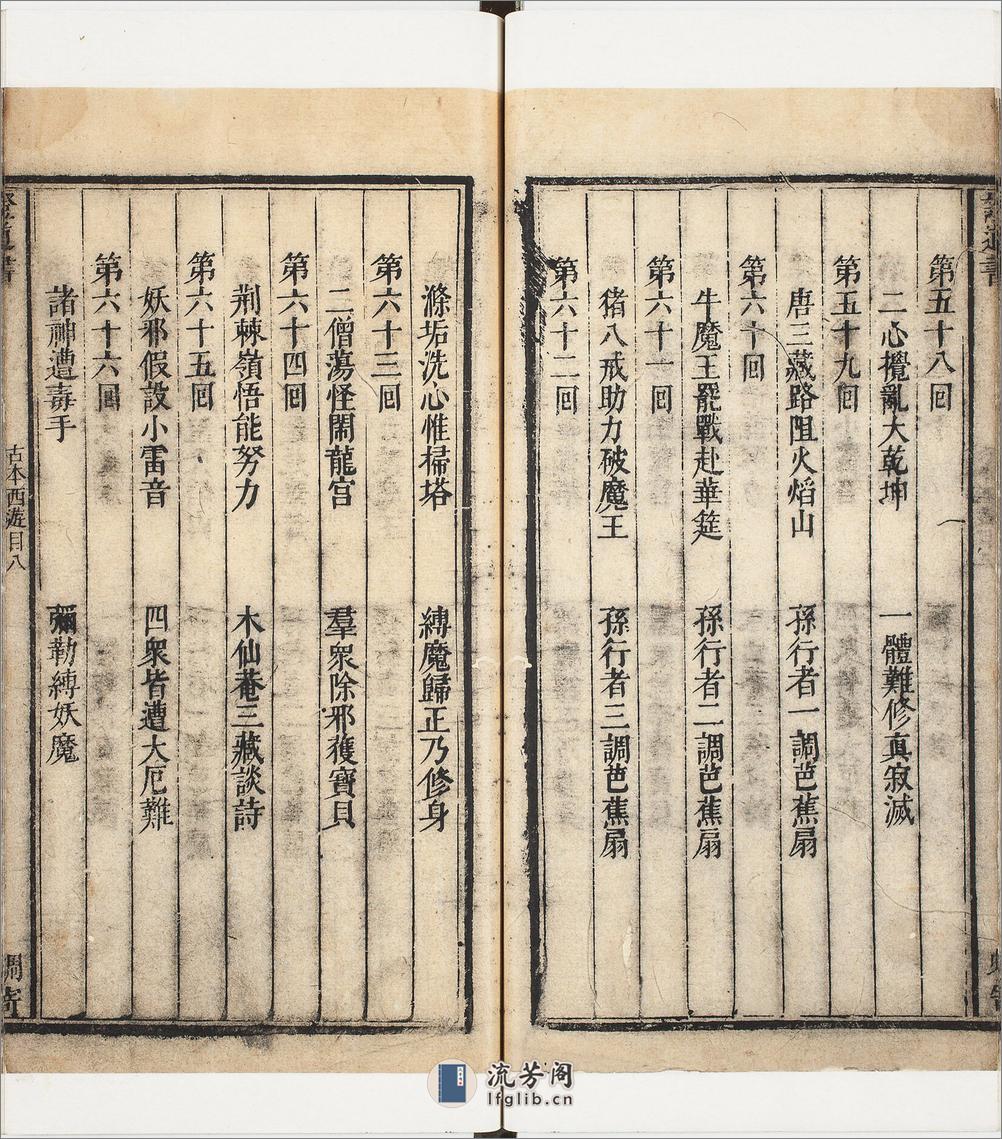 第五十八回
二心攪亂大乾坤 一體難修真寂滅
第五十九回
唐三藏路阻火焰山 孫行者一調芭蕉扇
第六十回
牛魔王罷戰赴華筵 孫行者二調芭蕉扇
第六十一回
猪八戒助力破魔王 孫行者三調芭蕉扇
第六十二回
滌垢洗心惟掃塔 縛魔歸正乃修身
第六十三回
二僧蕩怪閙龍宮 羣衆除邪獲寶貝
第六十四回
荆棘嶺悟能努力 木仙菴三藏談詩
第六十五回
妖邪假設小雷音 四衆皆遭大厄難
第六十六回
諸神遭毒手 彌勒縛妖魔
古本西遊目八
流芳阁
lfglib.cn